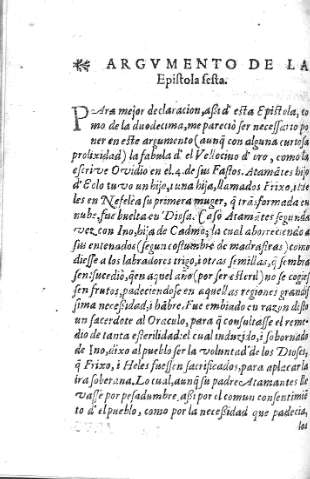 ❧ ARGVMENTO DE LA
Epiſtola ſeſta.
PAra mejor declaracion, aßi d' eſta Epiſtola, to
mo de la duodecima, me pareciò ſer neceſſario po
ner en eſte argumento (aunq̃ con alguna curioſa
prolixidad) la fabula d'el Vellocino d'oro, como la
eſcrive Ovidio en el.4. de ſus Faſtos. Atamãtes hijo
d'Eolo tuvo un hijo, i una hija, llamados Frixo, i He
les en Nefelea ſu primera muger, q̃ trãsformada en
nube, fue buelta en Dioſa. Caſò Atamãtes ſegunda
vez con Ino, hija de Cadmo; la cual aborreciendo a
ſus entenados (ſegun coſtumbre de madraſtras) como
dieſſe a los labradores trigo, i otras ſemillas, q̃ ſembra
ſen; ſucediò, q̃ en aquel año (por ſer eſteril) no ſe cogieſ
ſen frutos, padeciendoſe en aquellas regiones grandiſ
ſima neceßidad, i hãbre. Fue embiado en razon diſto
un ſacerdote al Oraculo, para q̃ conſultaſſe el reme
dio de tanta eſterilidad: el cual induzido, i ſobornado
de Ino, dixo al pueblo ſer la voluntad de los Dioſes,
q̃ Frixo, i Heles fueſſen ſacrificados, para aplacar la
ira ſoberana. Lo cual, aunq̃ ſu padre Atamantes lle
vaſſe por peſadumbre, aßi por el comun conſentimiẽ
to d'el pueblo, como por la neceßidad que padecia,
los